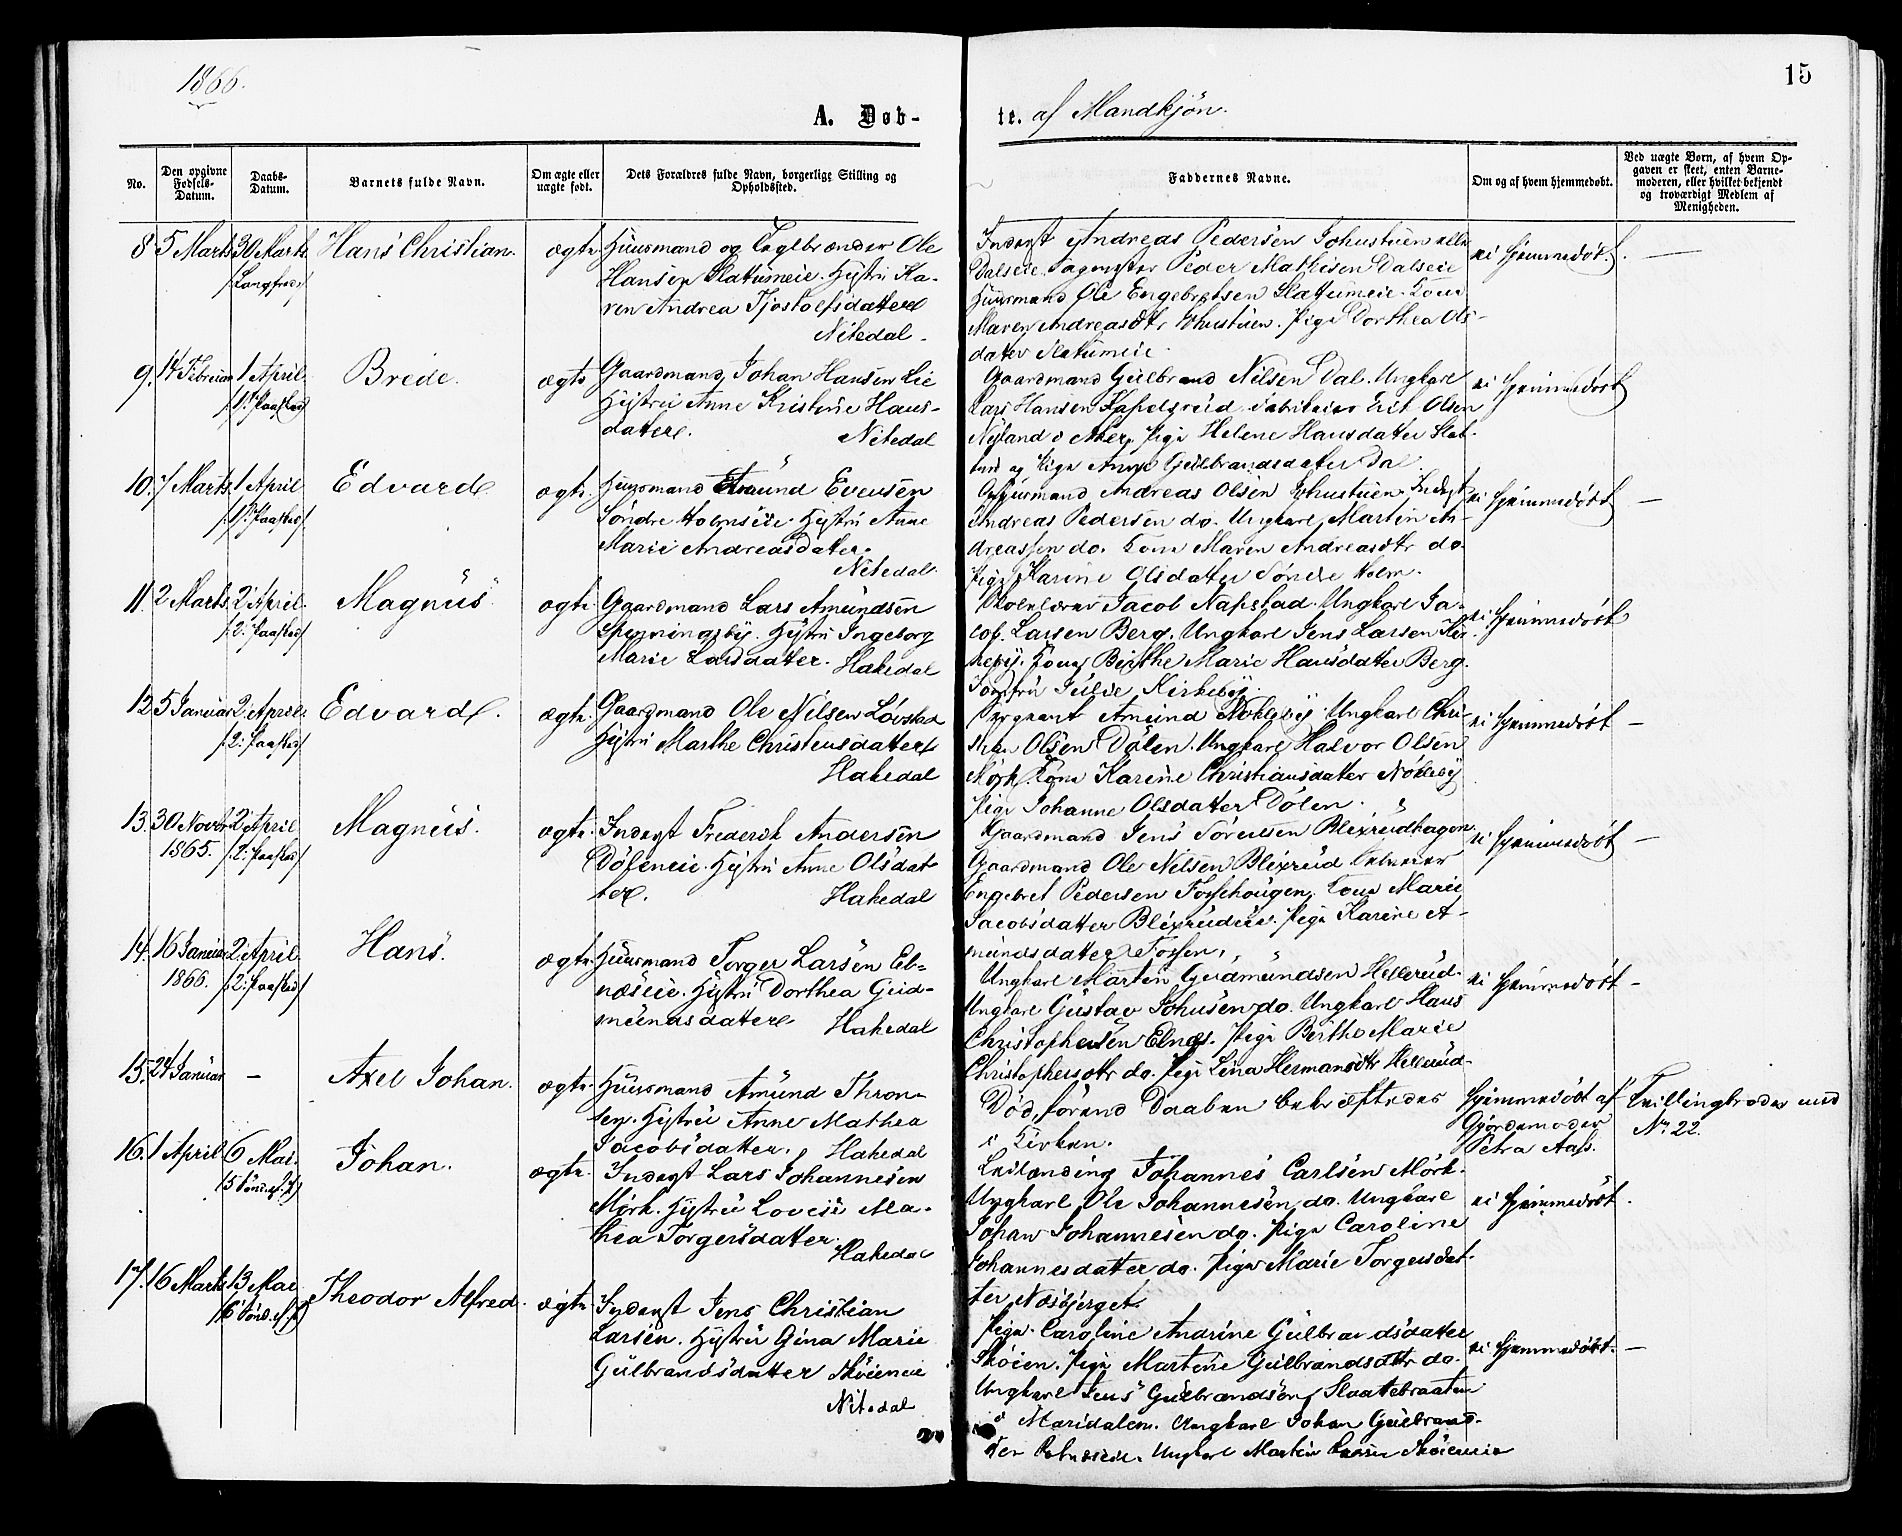 1866.
15
A. Døb-
te. af Mandkjön.
No.
Den opgivne Fødsels-Datum.
Daabs-Datum.
Barnets fulde Navn.
Om ægte eller uægte født.
Dets Forældres fulde Navn, borgerlige Stilling og Opholdssted.
Faddernes Navne.
Om og af hvem hjemmedøbt.
Ved uægte Børn, af hvem Op-
gaven er skeet, enten Barne-
moderen, eller hvilket bekjendt
og troværdigt Medlem af
Menigheden.
8 5 Marts 30 Marts Hans Christian. ægte
/Langfred/
Huusmand og Teglbrænder Ole
Hansen Slatumeie. Hustru Ka-
ren Andrea Tjostolfsdatter
Nitedal.
Inderst Andreas Pedersen Johnstuen eller
Dalseie. Peder Mathisen Dalseie
Huusmand Ole Engebretsen Slatumeie. Kone
Maren Andreasdtr Johnstuen. Pige Dorthea Ols-
datter Slatumeie.
ei hjemmedøbt. —
9. 14 Februar 1 April. Brede. ægte
/1. Paasked/
Gaardmand Johan Hansen Lie
Hustru Anne Kristine Hans-
datter.
Nitedal
Gaardmand Gulbrand Nilsen Dal. Ungkarl
Lars Hansen Fabrikeier Erik Olsen
Nyland i Aker. Pige Helene Hansdatter Slat-
tum og Pige Anne Gulbrandsdatter Dal.
ei hjemmedøbt
10. 7 Marts 1 April Edvard ægte.
/1. Paasked/
Huusmand Amund Evensen
Søndre Holmseie. Hustru Anne
Marie Andreasdatter.
Nitedal.
Huusmand Andreas Olsen Johnstuen. Inderst
Andreas Pedersen do. Ungkarl Martin An-
dreassen do. Kone Maren Andreasdtr do.
Pige Karine Olsdatter Søndre Holm.
ei hjemmedøbt —
11. 2 Marts 2 April. Magnus ægte
/2. Paasked/
Gaardmand Lars Amundsen
Spenningsby. Hustru Ingeborg
Marie Larsdatter. Hakedal
Skolelærer Jacob Nafstad. Ungkarl Ja-
cob Larsen Berg. Ungkarl Jens Larsen Kir-
keby. Kone Birthe Marie Hansdatter Berg.
Jomfru Julie Kirkeby.
ei hjemmedøbt
12 5 Januar 2 April Edvard. ægte.
/2. Paasked/
Gaardmand Ole Nilsen Løvstad
Hustru Marthe Christensdatter
Hakedal
Sergeant Amund Nökleby. Ungkarl Chri-
stian Olsen Dölen. Ungkarl Halvor Olsen
Mörk. Kone Karine Christiansdatter Nökleby
Pige Johanne Olsdatter Dölen.
ei hjemmedøbt —
13. 30 Novbr 2 April Magnus. ægte.
1865. /2. Paasked/
Inderst Frederik Andersen
Döleneie. Hustru Anne Olsdat-
ter. Hakedal
Gaardmand Jens Sörensen Blixrudhagen
Gaardmand Ole Nilsen Blixrud
Engebret Pedersen Fossehougen. Kone Marie
Jacobsdatter Blixrudeie. Pige Karine A-
mundsdatter Fossen.
ei hjemmedøbt —
14. 16 Januar 2 April Hans. ægte.
1866. /2. Paasked/
Huusmand Torger Larsen El-
næseie. Hustru Dorthea Gud-
mundsdatter Hakedal
Ungkarl Martin Gudmundsen Hellerud.
Ungkarl Gustav Johnsen do. Ungkarl Hans
Christophersen Elnæs. Pige Berthe Marie
Christophersdtr do. Pige Lina Hermansdtr Hellerud.
ei hjemmedøbt —
15. 24 Januar — Axel Johan. ægte.
Huusmand Amund Thron-
sen. Hustru Anne Mathea
Jacobsdatter. Hakedal
Död, förend Daaben bekræftedes
i Kirken.
Hjemmedøbt af
Gjordemoder
Petra Aas.
Tvillingbroder med
No 22.
16. 1 April 6 Mai. Johan. ægte.
/5 Sönd. ef. P/
Inderst Lars Johannesen
Mörk. Hustru Lovise Ma-
thea Torgersdatter.
Hakedal
Leilænding Johannes Carlsen Mörk.
Ungkarl Ole Johannesen do. Ungkarl
Johan Johannesen do. Pige Caroline
Johannesdatter do. Pige Marie Torgersdat-
ter Næsbjerget.
ei hjemmedøbt.
17. 16 Marts 13 Mai Theodor Alfred. ægte
/6 Sönd. ef. P/
Inderst Jens Christian
Larsen. Hustru Gina Marie
Gulbrandsdatter Sköieneie
Nitedal
Pige Caroline Andrine Gulbrandsdatter
Sköien. Pige Martine Gulbrandsdtr do.
Ungkarl Jens Gulbrandsen Slaatebraaten
i Maridalen. Ungkarl Johan Gulbrand-
sen Ungkarl Martin Larsen Sköieneie
ei hjemmedøbt. —